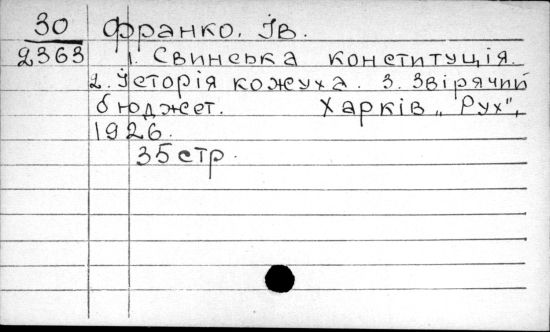 30 Франко, Ів.
2363 1. Свинська конституція.
2. Історія кожуха. 3. Звірячий
бюджет. Харків „Рух",
1926.
35 стр.